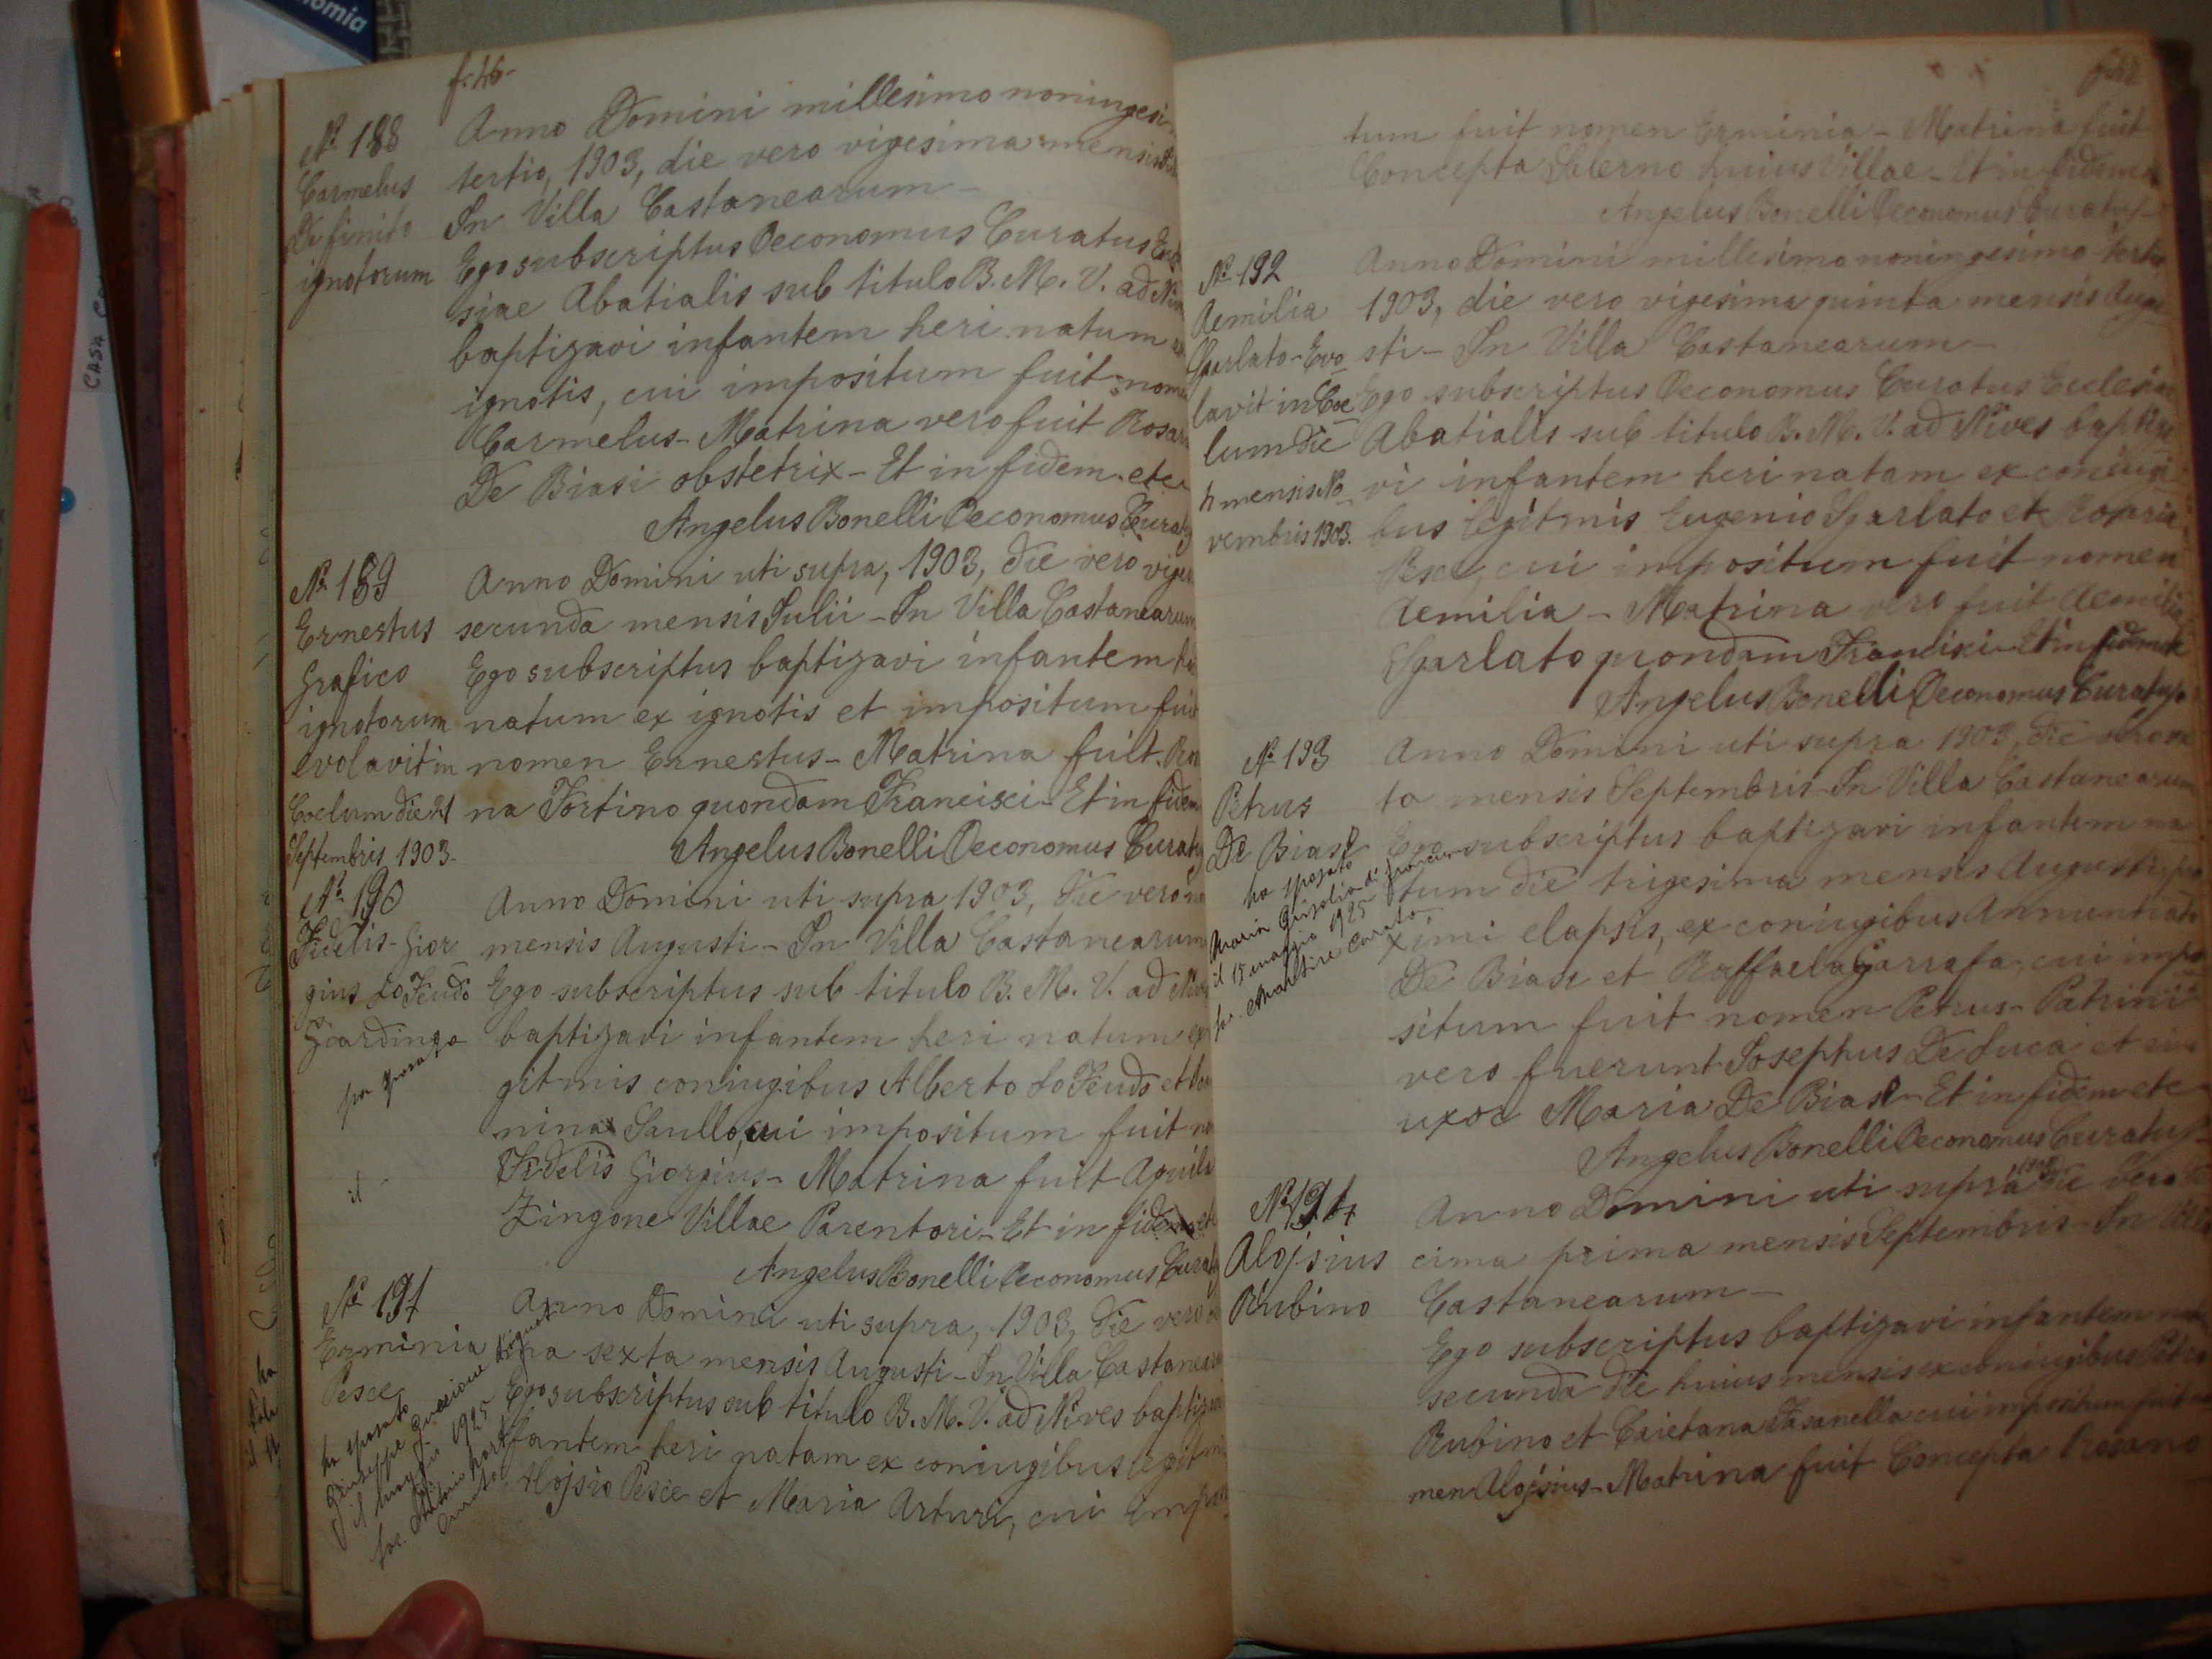 f. 46
Nº 188
Carmelus
Definito
ignotorum
Anno Domini millesimo noningesi
tertio, 1903, die vero vigesima mensis
In Villa Castanearum
Ego subscriptus Oeconomus Curatus Eccle
siae Abatialis sub titulo B. M. V. ad Niv
baptizavi infantem heri natum ex
ignotis, cui impositum fuit nome
Carmelus - Matrina vero fuit Rosar
De Biasi obstetrix - Et in fidem etc
Angelus Bonelli Oeconomus Curatus
Nº 189
Ernestus
Grafico
ignotorum
evolavit in
Coelum die 21
Septembris 1903
Anno Domini uti supra, 1903, die vero viges
secunda mensis Julii - In Villa Castanearum
Ego subscriptus baptizavi infantem
natum ex ignotis et impositum fuit
nomen Ernestus - Matrina fuit
na Fortino quondam Francisci - Et in fidem
Angelus Bonelli Oeconomus Curatus
Nº 190
Fidelis - Gior
gius Lo Feudo
Giardino
ha sposato
il
Anno Domini uti supra 1903, die vero
mensis Augusti - In Villa Castanearum
Ego subscriptus sub titulo B. M. V. ad Niv
baptizavi infantem heri natum ex
gitmis coniugibus Alberto Lo Feudo et
nina Saullo, cui impositum fuit no
Fidelis Giorgius - Matrina fuit Aquila
Zingone Villae Parentori - Et in fidem etc
Angelus Bonelli Oeconomus Curatus
Nº 191
Erminia
Pesce
ha sposato
Giuseppe
il maggio 1925
Anno Domini uti supra, 1903, die vero
sexta mensis Augusti - In Villa Castanearum
Ego subscriptus sub titulo B. M. V. ad Nives baptizavi
fantem heri natam ex coniugibus legitmis
Alojsio Pesce et Maria Arturi, cui impos
tum fuit nomen Erminia - Matrina fuit
Concepta Salerno huius Villae - Et in fidem etc
Angelus Bonelli Oeconomus Curatus
Nº 192
Aemilia
Sgarlato - Evo
lavit in Coe
lum die
4 mensis No
vembris 1903.
Anno Domini millesimo noningesimo tertio
1903, die vero vigesima quinta mensis Augu
sti - In Villa Castanearum -
Ego subscriptus Oeconomus Curatus Ecclesiae
Abatialis sub titulo B. M. V. ad Nives baptiza
vi infantem heri natam ex coniugi
bus legitmis Eugenio Sgarlato et Rosaria
Pesce, cui impositum fuit nomen
Aemilia - Matrina vero fuit Aemilia
Sgarlato quondam Francisci - Et in fidem etc
Angelus Bonelli Oeconomus Curatus
Nº 193
Petrus
De Biase
ha sposato
Maria Grisolia di Francesco
il 15 maggio 1925
Anno Domini uti supra 1903, die vero
to mensis Septembris - In Villa Castanearum
Ego subscriptus baptizavi infantem na
tum die trigesima mensis Augusti pro
ximi elapsis, ex coniugibus Annuntiato
De Biase et Raffaela Garrafa, cui impo
situm fuit nomen Petrus - Patrini
vero fuerunt Josephus De Luca et eius
uxor Maria De Biase - Et in fidem etc
Angelus Bonelli Oeconomus Curatus
Nº 194
Alojsius
Rubino
Anno Domini uti supra 1903 die vero
cima prima mensis Septembris - In Villa
Castanearum -
Ego subscriptus baptizavi infantem natum
secunda die huius mensis ex coniugibus Petro
Rubino et Caietana Fasanella cui impositum fuit no
men Alojsius - Matrina fuit Concepta Rosano